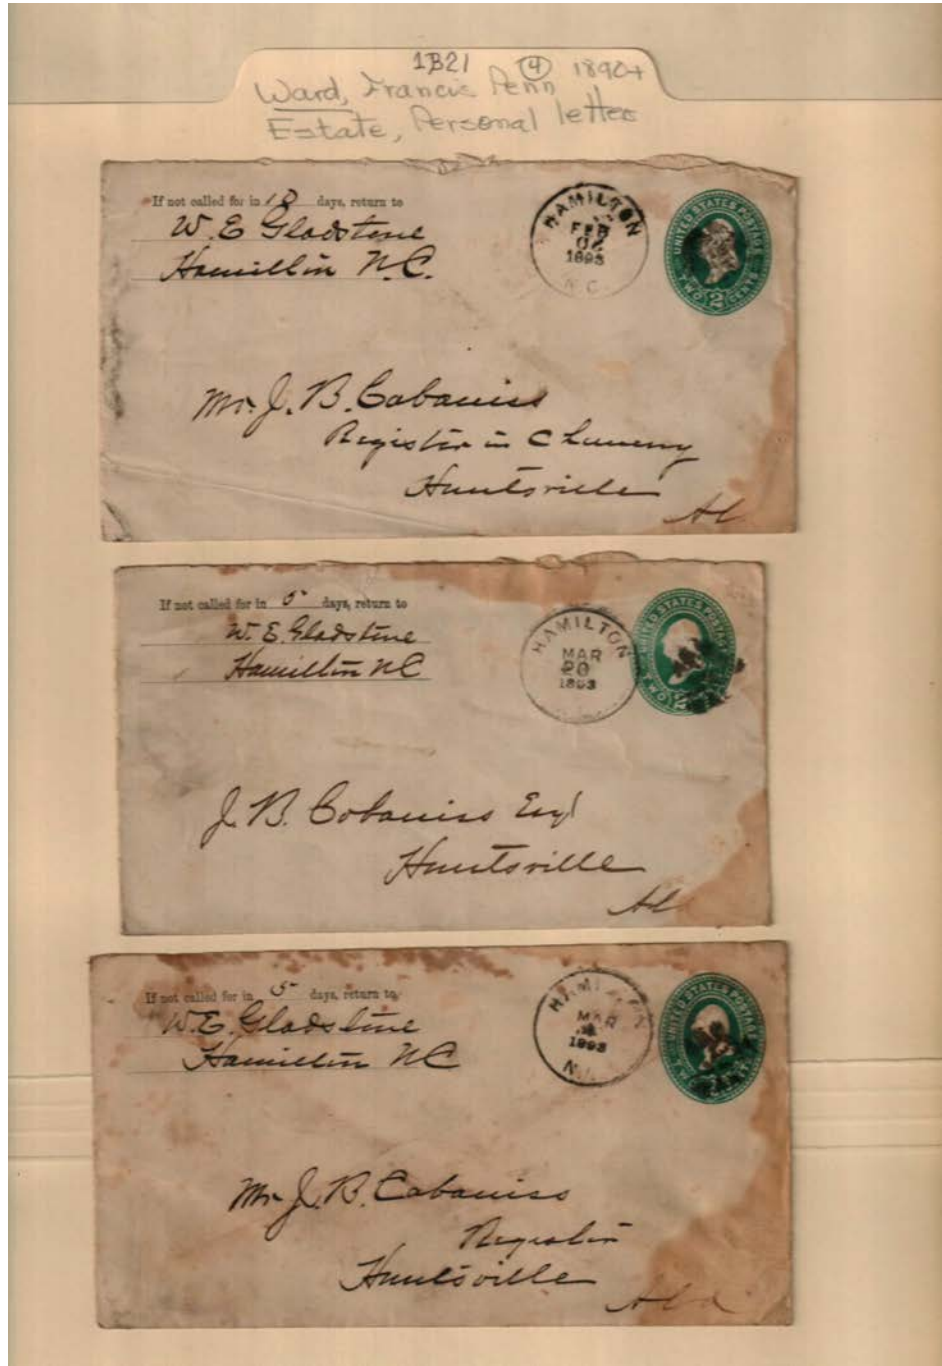 1B21 ④ 1890+
Ward, Francis Penn
Estate, Personal letter
If not called for in 10 days, return to
W. E Gladstone
Hamilton N.C.
HAMILTON
FEB
1893
N.C.
UNITED STATES POSTAGE
TWO 2 CENTS
Mr. J. B. Cabaniss
Register in Chancery
Huntsville
Al
If not called for in 5 days, return to
W. E. Gladstone
Hamilton NC
HAMILTON
MAR
20
1893
UNITED STATES POSTAGE
TWO 2
J. B. Cabaniss Esq
Huntsville
Al
If not called for in 5 days, return to
W. E. Gladstone
Hamilton NC
HAMILTON
MAR
1893
UNITED STATES POSTAGE
Mr J. B. Cabaniss
Register
Huntsville
Ala